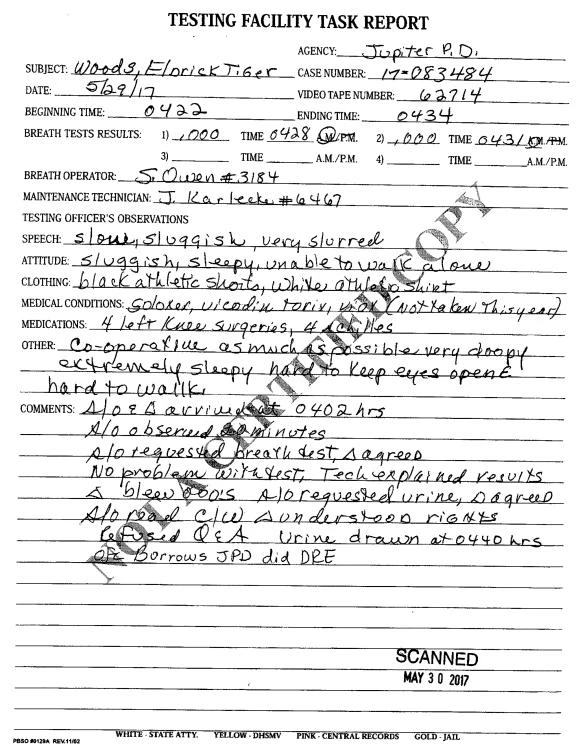 TESTING FACILITY TASK REPORT
AGENCY: Jupiter P.D.
SUBJECT: Woods, Eldrick Tiger CASE NUMBER: 17-083484
DATE: 5/29/17 VIDEO TAPE NUMBER: 62714
BEGINNING TIME: 0422 ENDING TIME: 0434
BREATH TESTS RESULTS: 1) .000 TIME 0428 A.M./P.M. 2) .000 TIME 0431 A.M./P.M.
3) TIME A.M./P.M. 4) TIME A.M./P.M.
BREATH OPERATOR: S. Owen #3184
MAINTENANCE TECHNICIAN: J. Karlecke #6467
TESTING OFFICER'S OBSERVATIONS
SPEECH: slow, sluggish, very slurred
ATTITUDE: sluggish, sleepy, unable to walk alone
CLOTHING: black athletic shorts, white athletic shirt
MEDICAL CONDITIONS: Soloxer, vicodin torix, (not taken this year)
MEDICATIONS: 4 left Knee surgeries, 4 achilles
OTHER: Co-operative as much as possible very doopy
extremely sleepy hard to keep eyes open &
hard to wallk.
COMMENTS: A/o & Δ arrived at 0402 hrs
A/o observed 20 minutes
A/o requested breath test, Δ agreed
No problem with test, Tech explained results
Δ bleew 000's A/o requested urine, Δ agreed
A/o read C/W Δ understood rights
Refused Q & A Urine drawn at 0440 hrs
Ofc Borrows JPD did DRE
NOT A CERTIFIED COPY
SCANNED
MAY 30 2017
PBSO #0129A REV.11/02 WHITE - STATE ATTY. YELLOW - DHSMV PINK - CENTRAL RECORDS GOLD - JAIL